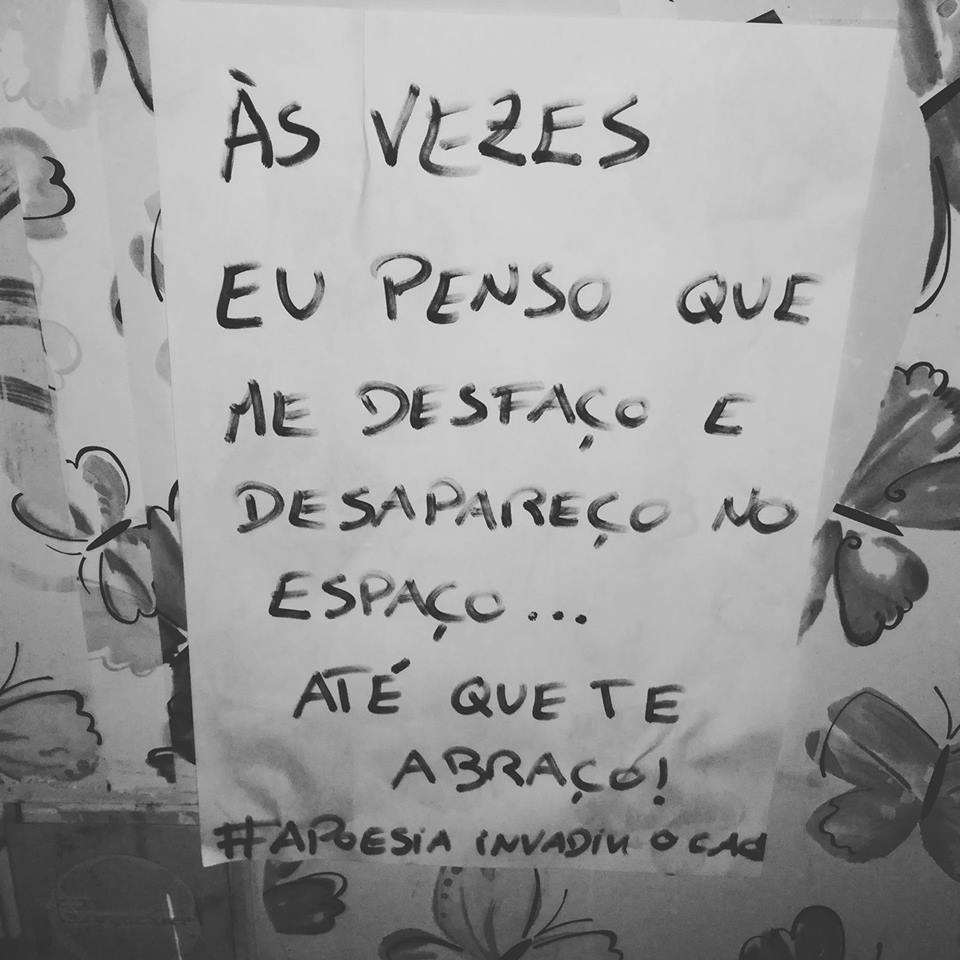 ÀS VEZES
EU PENSO QUE
ME DESFAÇO E
DESAPAREÇO NO
ESPAÇO...
ATÉ QUE TE
ABRAÇO!
#APOESIA INVADIU O CAd